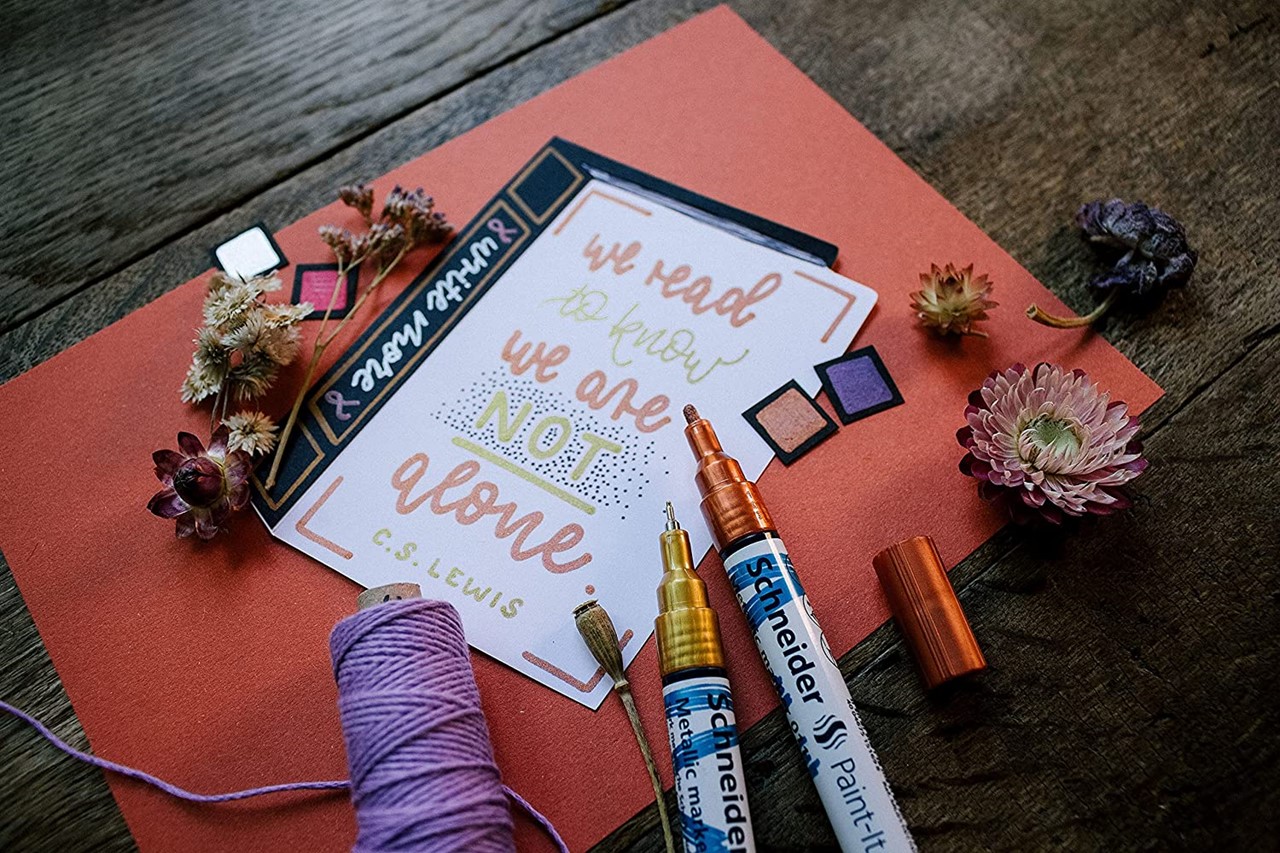 & write more &
we read
to know
we are
NOT
alone.
C.S. LEWIS
Schneider
Metallic marker
Schneider
Paint-It